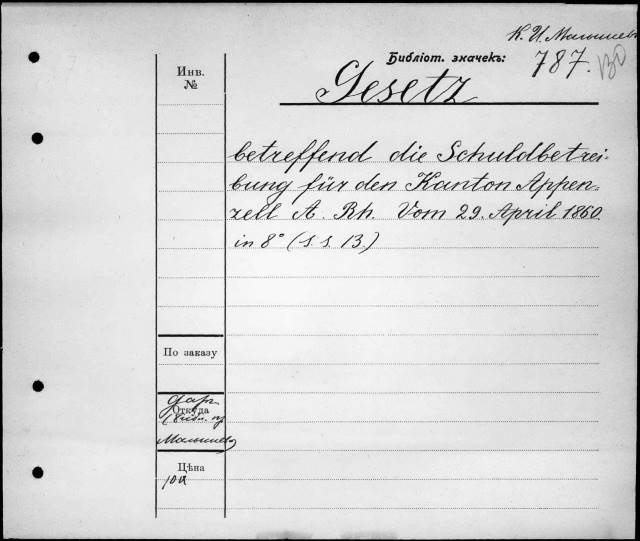 К. И. Малышевъ
Библіот. значекъ: 787.
Инв. №
Gesetz
betreffend die Schuldbetrei-
bung für den Kanton Appen-
zell A. Rh. Vom 29. April 1860.
in 8° (s. s. 13.)
По заказу
Откуда
Малышева
Цѣна